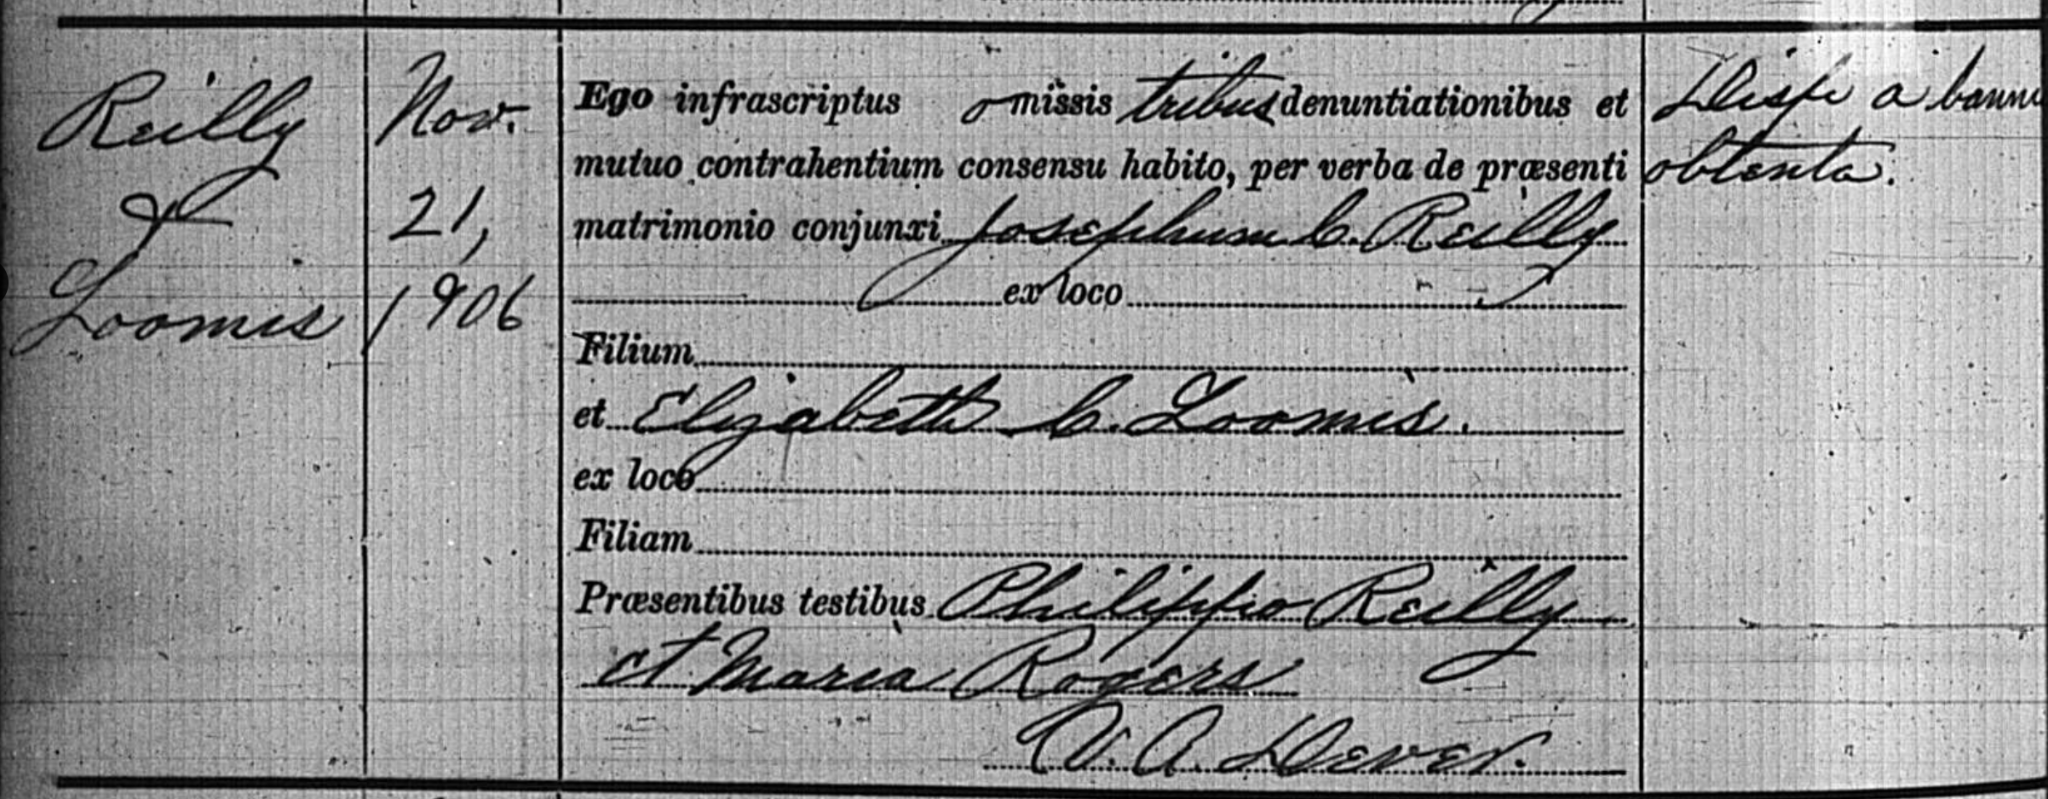 Reilly
&
Loomis
Nov.
21,
1906
Ego infrascriptus omissis tribus denuntiationibus et
mutuo contrahentium consensu habito, per verba de præsenti
matrimonio conjunxi Josephum C. Reilly
ex loco
Filium
et Elizabeth C. Loomis.
ex loco
Filiam
Præsentibus testibus Philippo Reilly
et Maria Rogers
V. A. Dever.
Disp a bann
obtenta.